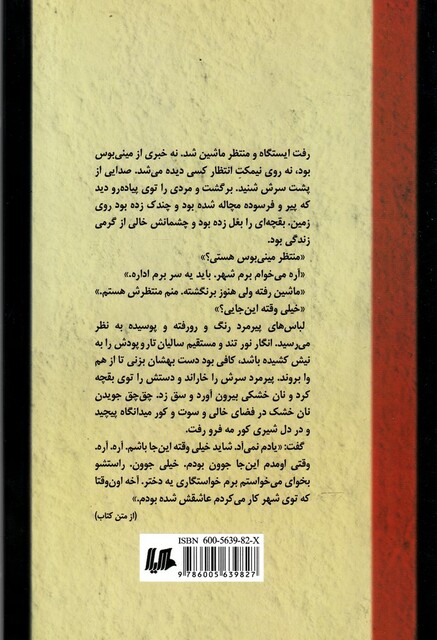 رفت ایستگاه و منتظر ماشین شد. نه خبری از مینی‌بوس
بود، نه روی نیمکتِ انتظار کسی دیده می‌شد. صدایی از
پشت سرش شنید. برگشت و مردی را توی پیاده‌رو دید
که پیر و فرسوده مچاله شده بود و چندک زده بود روی
زمین. بقچه‌ای را بغل زده بود و چشمانش خالی از گرمی
زندگی بود.
«منتظر مینی‌بوس هستی؟»
«آره می‌خوام برم شهر. باید یه سر برم اداره.»
«ماشین رفته ولی هنوز برنگشته. منم منتظرش هستم.»
«خیلی وقته این‌جایی؟»
لباس‌های پیرمرد رنگ و رورفته و پوسیده به نظر
می‌رسید. انگار نور تند و مستقیم سالیان تار و پودش را به
نیش کشیده باشد، کافی بود دست بهشان بزنی تا از هم
وا بروند. پیرمرد سرش را خاراند و دستش را توی بقچه
کرد و نان خشکی بیرون آورد و سق زد. چق‌چق جویدن
نان خشک در فضای خالی و سوت و کور میدانگاه پیچید
و در دل شیری کور مه فرو رفت.
گفت: «یادم نمی‌آد. شاید خیلی وقته این‌جا باشم. آره. آره.
وقتی اومدم این‌جا جوون بودم. خیلی جوون. راستشو
بخوای می‌خواستم برم خواستگاری یه دختر. آخه اون‌وقتا
که توی شهر کار می‌کردم عاشقش شده بودم.»
(از متن کتاب)
ISBN 600-5639-82-X
9 786005 639827